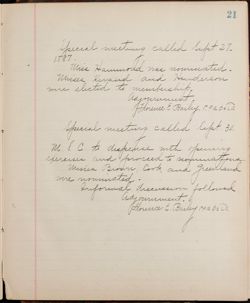 21
Special meeting called Sept 27.
1887.
Miss Hammond was nominated.
Misses Girard and Henderson
were elected to membership.
Adjournment.
Florence E. Bailey
Special meeting called Sept 30.
M. S. C. to dispense with opening
exercises and proceed to nominations.
Misses Brown, Cook and Greenland
were nominated.
Informal discussion followed
Adjournment.
Florence E. Bailey